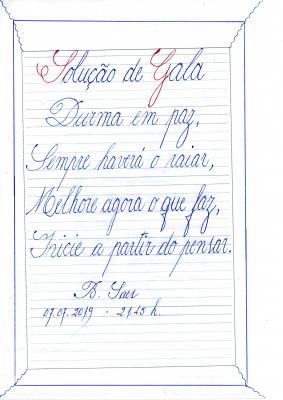 Solução de Gala
Durma em paz,
Sempre haverá o raiar,
Melhore agora o que faz,
Inicie a partir do pensar.
07.07.2019 - 21:25 h.